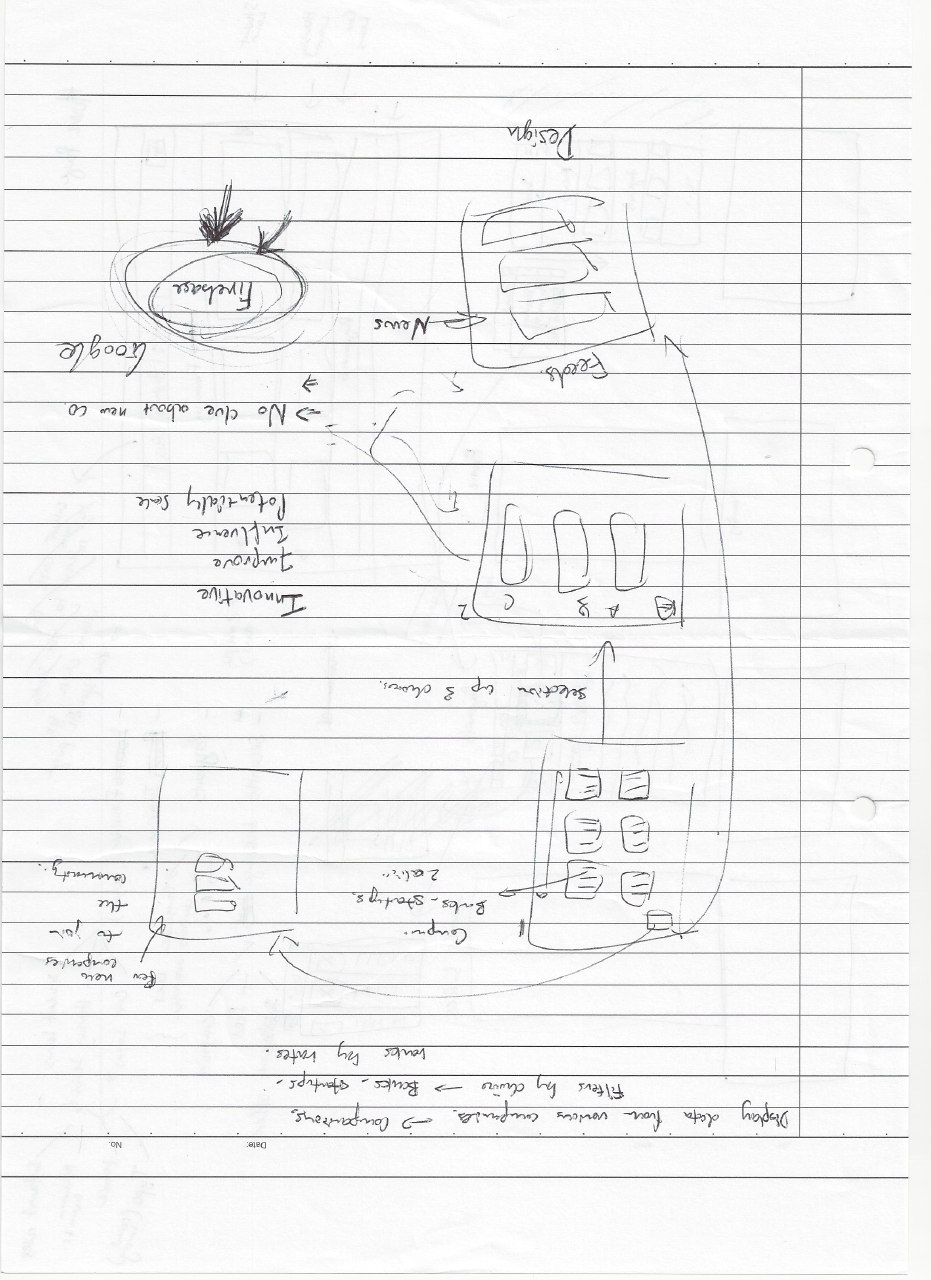 Date: No.
Display data from various companies. → Comparisons.
Filters by choice → Banks. startups.
ranks by rates.
Few new
companies
to join
the
community.
1
Banks. startups.
selection up 3
A B C 2
Innovative
Improve
Influence
Potentially scale
⇒ No clue about new co.
⇒
Feeds.
News
Google
Firebase
Design